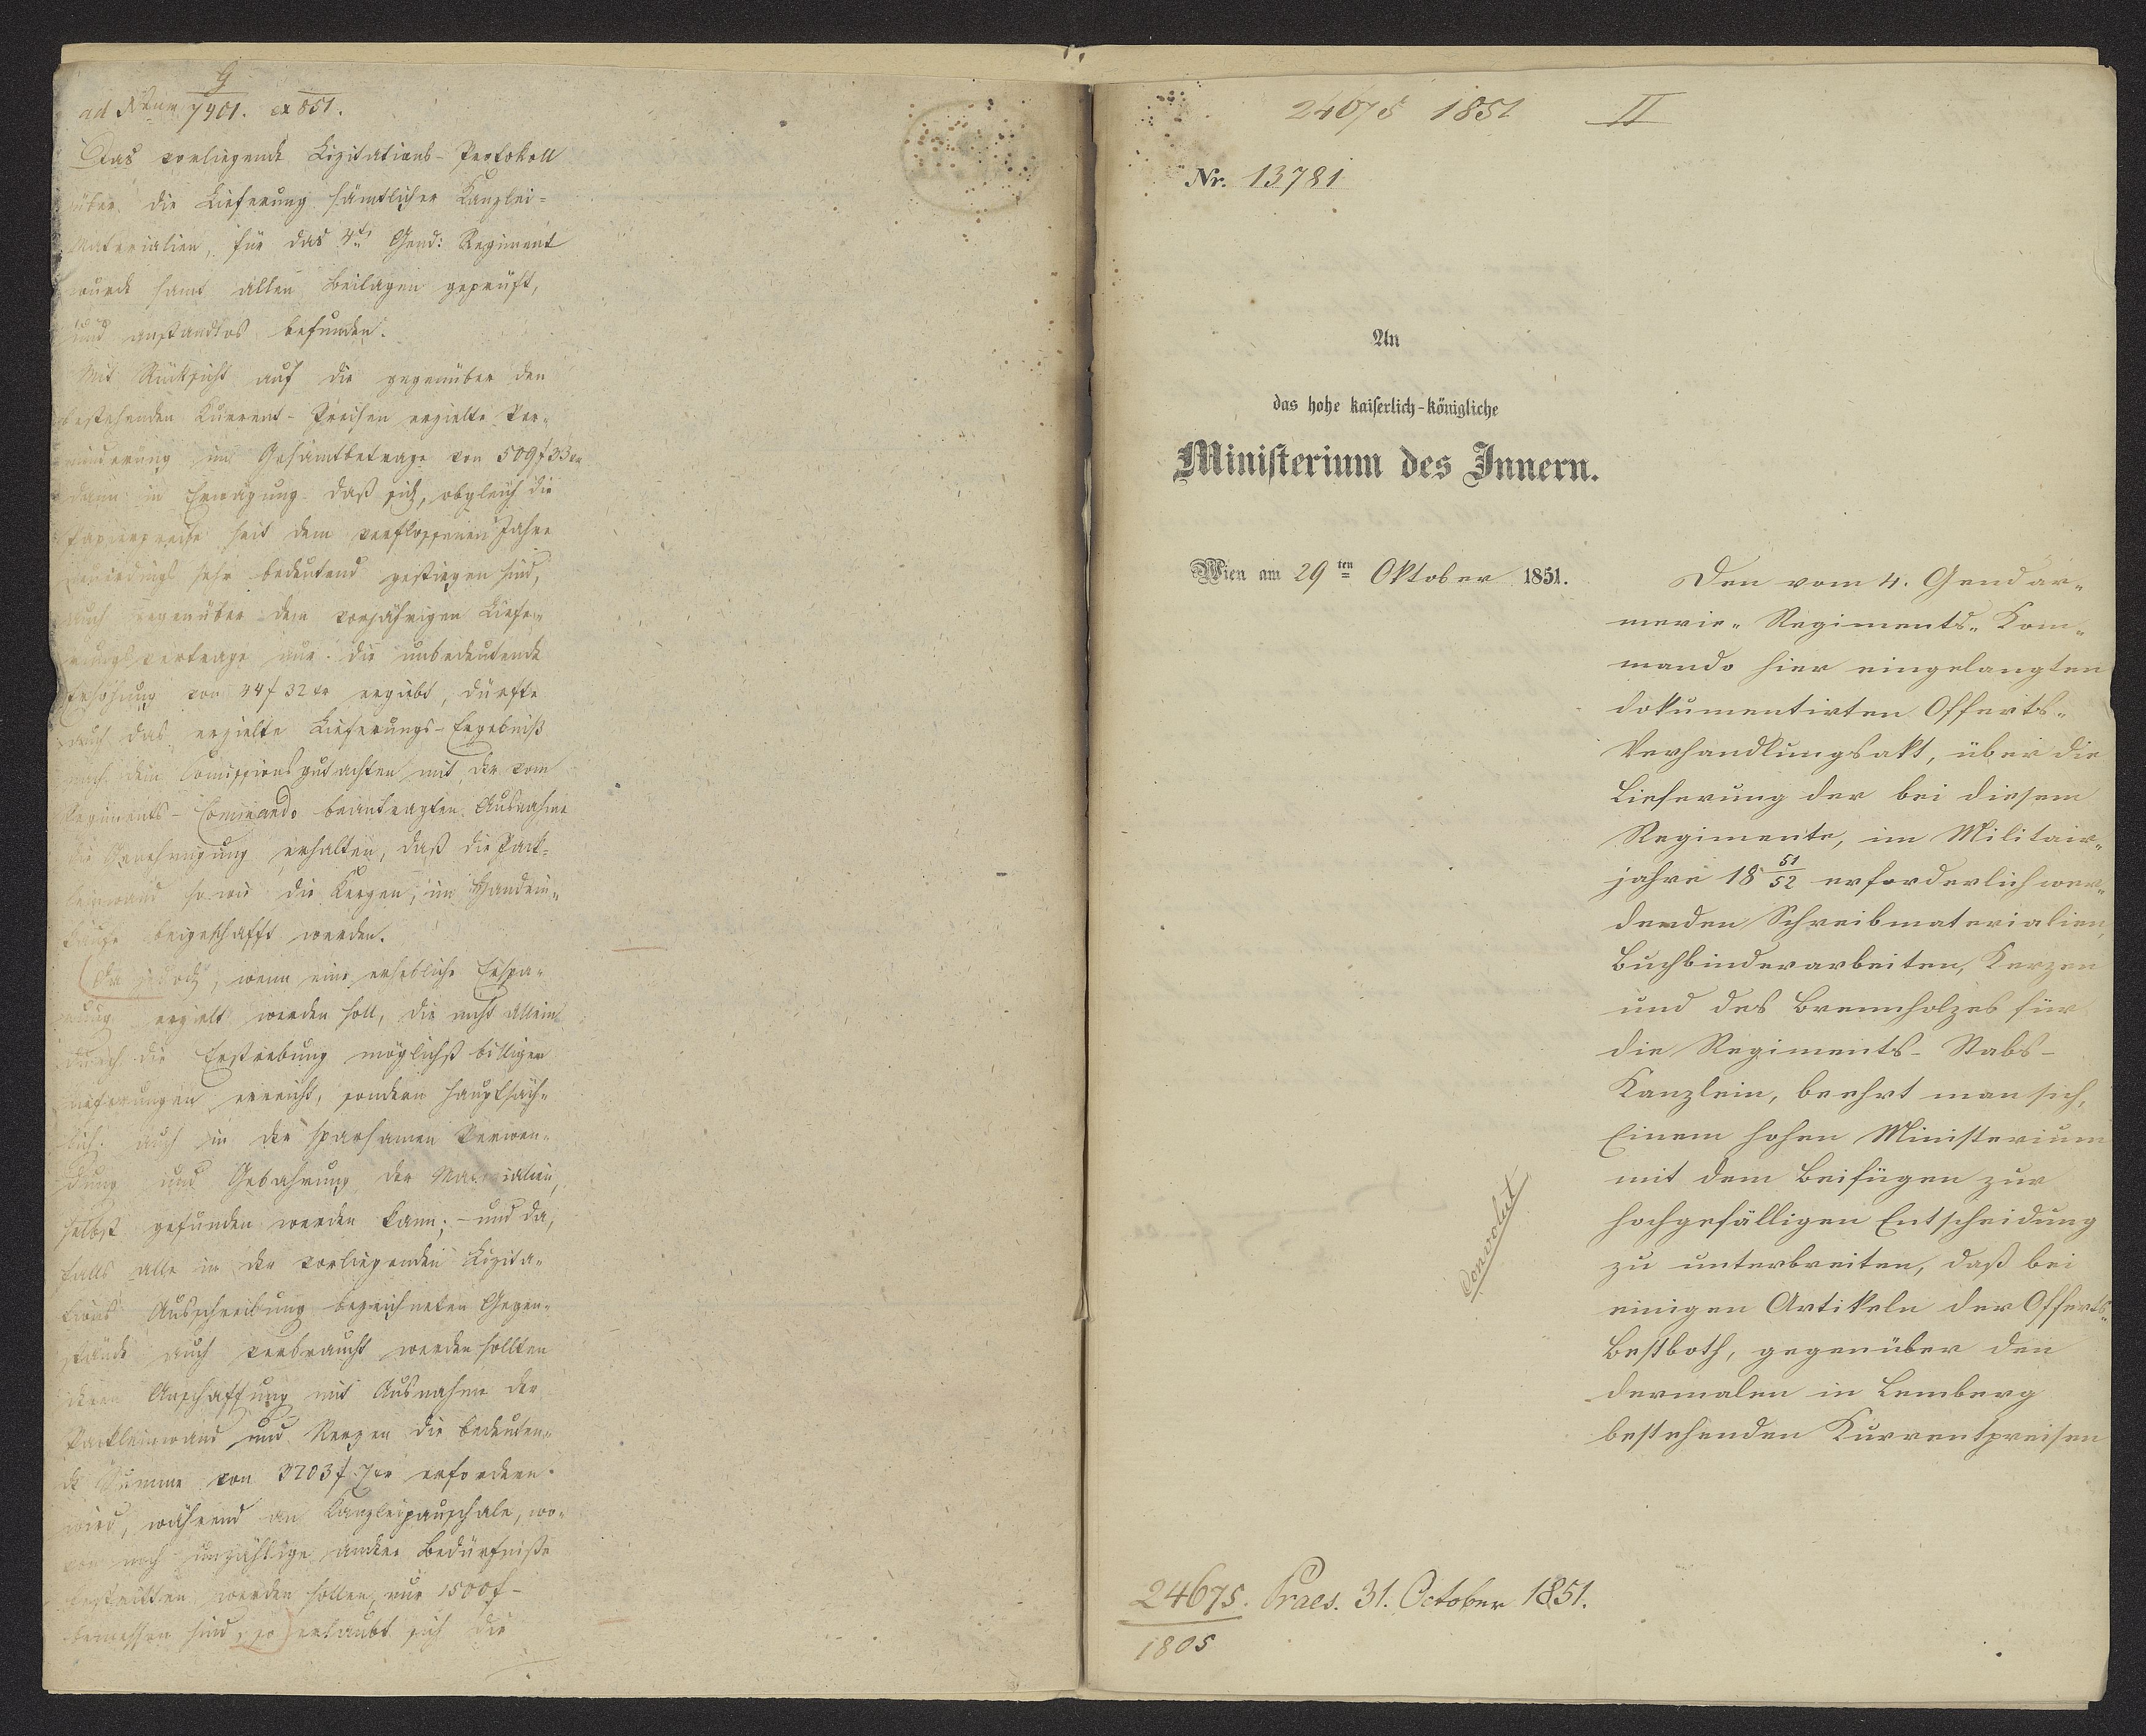 G
ad Num 7901. ex 851.
Das vorliegende Lizitations-Protokoll
über die Lieferung sämtlicher Kanzlei=
Materialien, für das 4te Gend: Regiment
wurde samt allen Beilagen geprüft,
und anstandlos befunden.
Mit Rücksicht auf die gegenüber den
bestehenden Current-Preisen erzielte Ver-
minderung im Gesamtbetrage von 509 f 33 xr
dann in Erwägung daß sich, obgleich die
Papierpreise seit dem verflossenen Jahre
neuerdings sehr bedeutend gestiegen sind,
auch gegenüber dem vorjährigen Liefe-
rungsvertrage nur die unbedeutende
Erhöhung von 44 f 32 xr ergiebt, dürfte
auch das erzielte Lieferungs-Ergebniß
nach dem Comissionsgutachten mit der vom
Regiments-Commando beantragten Ausnahme
die Genehmigung erhalten, daß die Pack-
leinwand so wie die Kerzen, im Handein-
kaufe beigeschafft werden.
Da jedoch, wenn eine erhebliche Erspa-
rung erzielt werden soll, die nicht allein
durch die Erstrebung möglichst billiger
Lieferungen erreicht, sondern hauptsäch-
lich auch in der sparsamen Verwen-
dung und Gebahrung der Materialien,
selbst gefunden werden kann; – und da,
falls alle in der vorliegenden Lizita-
tions Ausschreibung bezeichneten Gegen-
stände auch verbraucht werden sollten
deren Anschaffung mit Ausnahme der
Packleinwand und Kerzen die bedeuten-
de Summe von 3203 f 7 xr erfordern
wird, während an Kanzleipauschale, wo-
von noch unzählige andere Bedürfniße
bestritten werden sollen, nur 1500 f -
bemessen sind, so erlaubt sich die
24675 1851 II
Nr. 13781
An
das hohe kaiserlich-königliche
Ministerium des Innern.
Wien am 29ten Oktober 1851.
Den vom 4. Gendar-
merie-Regiments-Kom-
mando hier eingelangten
dokumentirten Offerts-
Verhandlungsakt, über die
Lieferung der bei diesem
Regimente, im Militair-
jahre 18 51/52 erforderlich wer-
denden Schreibmaterialien,
Buchbinderarbeiten, Kerzen
und des Brennholzes für
die Regiments-Stabs-
Kanzlein, beehrt man sich,
Einem hohen Ministerium
mit dem Beifügen zur
hochgefälligen Entscheidung
zu unterbreiten, daß bei
einigen Artikeln der Offerts-
Bestboth, gegenüber den
dermalen in Lemberg
bestehenden Kurrentpreisen
Convolut
24675. Praes. 31. October 1851.
1805